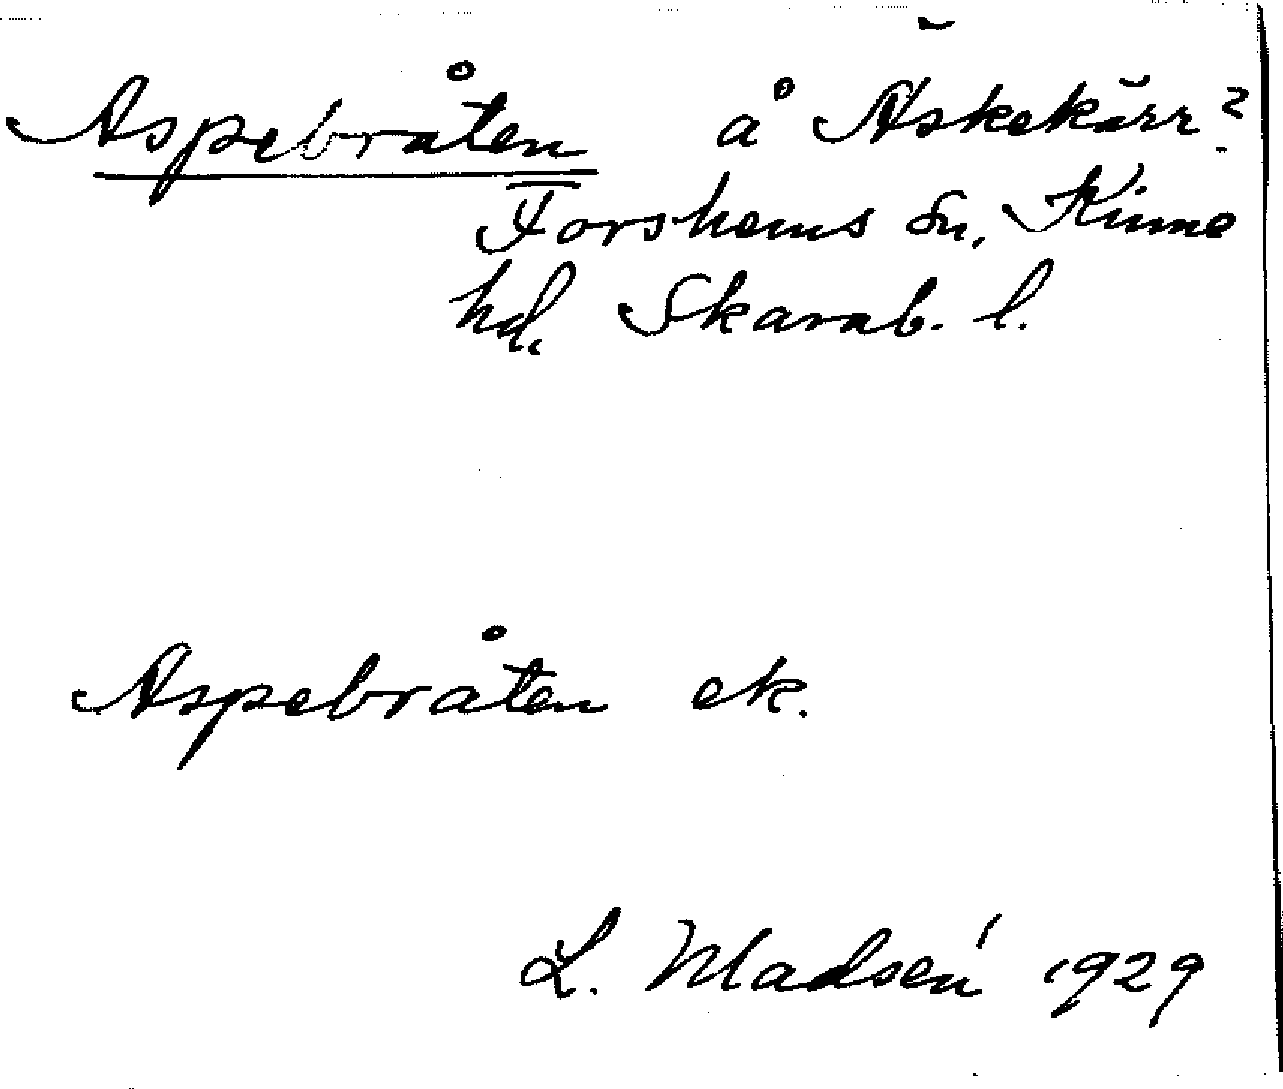 Aspebråten å Äskekärr?
Forshems sn, Kinne
hd, Skarab. l.
Aspebråten ek.
L. Madsén 1929